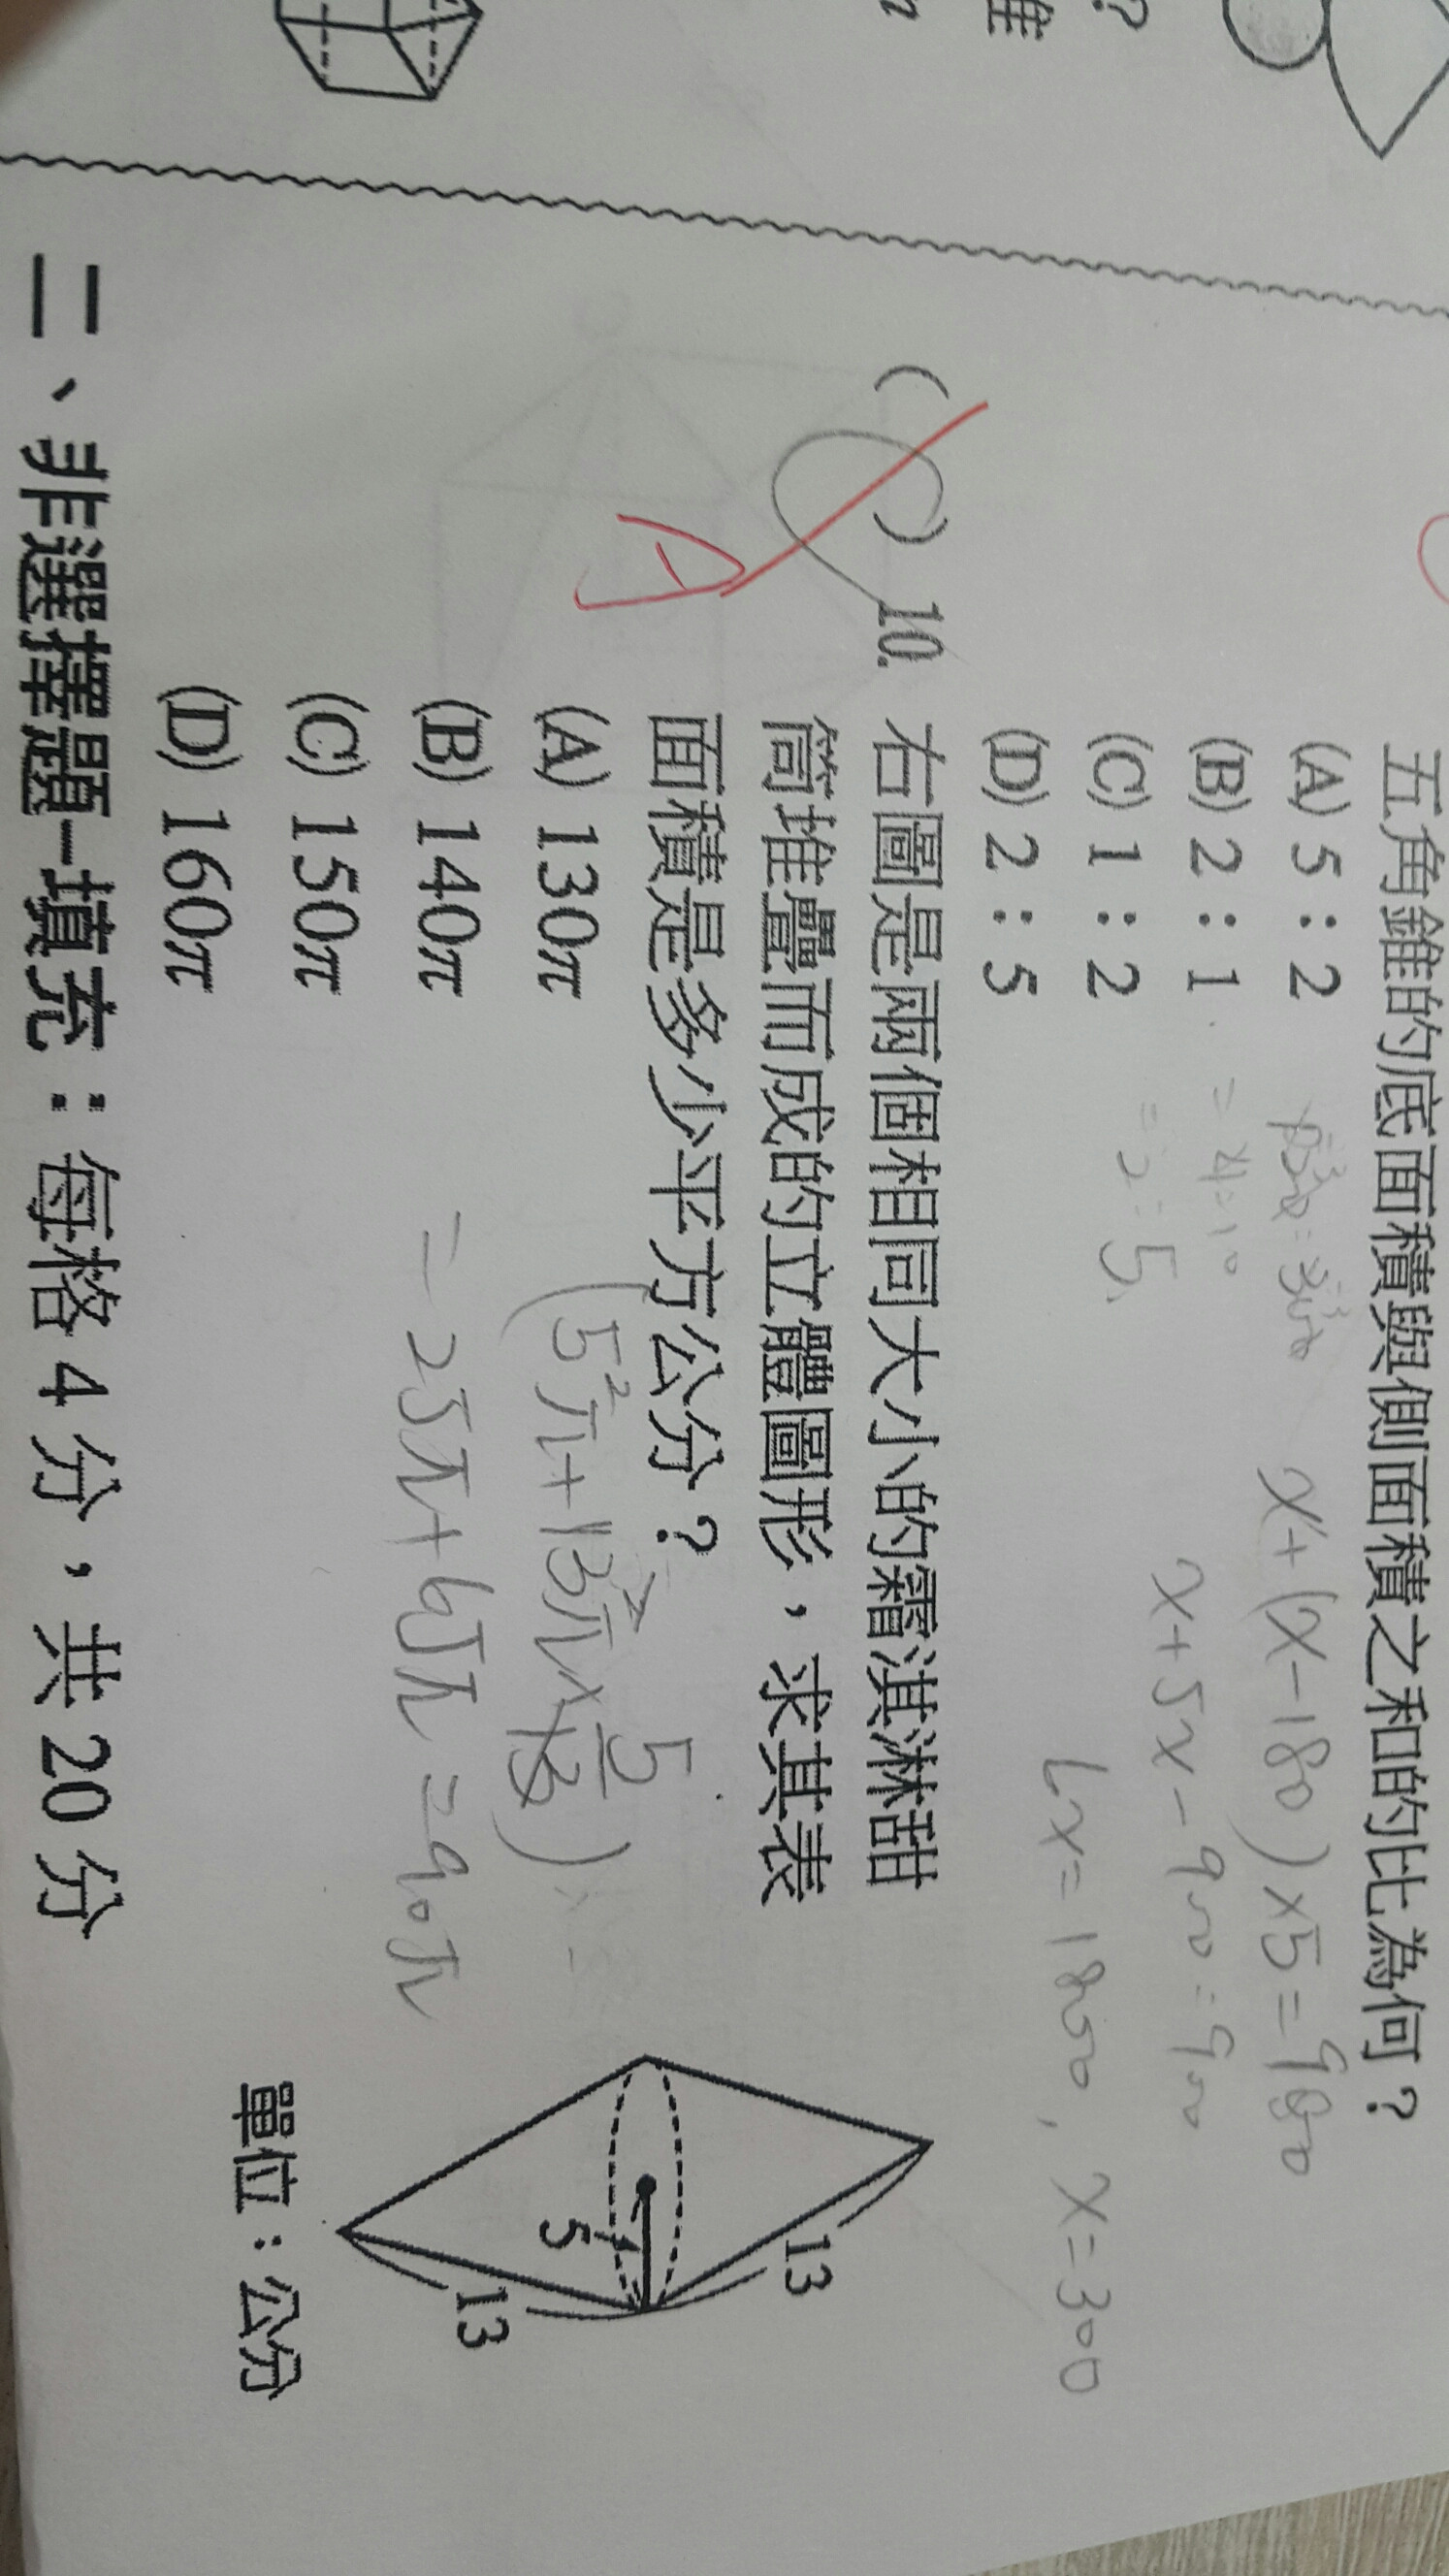 五角錐的底面積與側面積之和的比為何？
(A) 5：2
(B) 2：1
(C) 1：2
(D) 2：5
x+(x-180)×5=900
x+5x-900=900
6x=1800, x=300
=4:10
=2:5
10. 右圖是兩個相同大小的霜淇淋甜
筒堆疊而成的立體圖形，求其表
面積是多少平方公分？
(A) 130π
(B) 140π
(C) 150π
(D) 160π
A
(5²π+13²π×5/13)
=25π+65π=90π
13
5
13
單位：公分
二、非選擇題-填充：每格 4 分，共 20 分